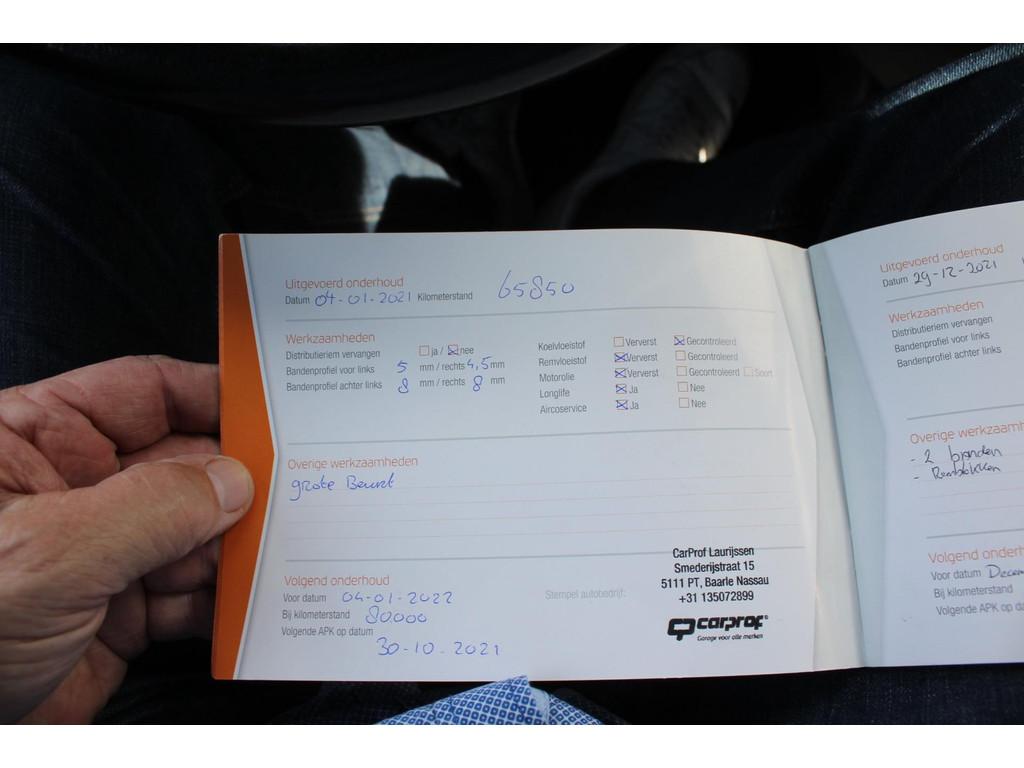 Uitgevoerd onderhoud
Datum 04-01-2021 Kilometerstand 65850
Werkzaamheden
Distributieriem vervangen ja / nee
Bandenprofiel voor links 5 mm / rechts 4,5 mm
Bandenprofiel achter links 8 mm / rechts 8 mm
Koelvloeistof Ververst Gecontroleerd
Remvloeistof Ververst Gecontroleerd
Motorolie Ververst Gecontroleerd Soort
Longlife Ja Nee
Aircoservice Ja Nee
Overige werkzaamheden
grote Beurt
Volgend onderhoud
Voor datum 04-01-2022
Bij kilometerstand 80000
Volgende APK op datum
30-10-2021
Stempel autobedrijf:
CarProf Laurijssen
Smederijstraat 15
5111 PT, Baarle Nassau
+31 135072899
carprof
Garage voor alle merken
Uitgevoerd onderhoud
Datum 29-12-2021
Werkzaamheden
Distributieriem vervangen
Bandenprofiel voor links
Bandenprofiel achter links
Overige werkzaamh
- 2 banden
- Remblokken
Volgend onderh
Voor datum Decem
Bij kilometerstand
Volgende APK op datu